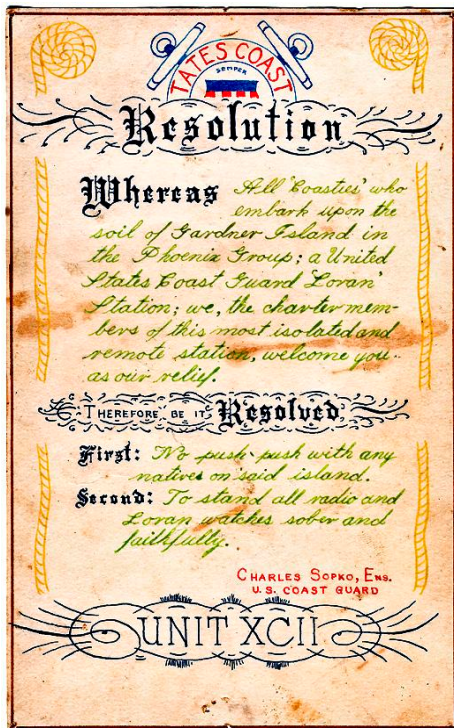 TATES COAST
SEMPER
Resolution
Whereas All 'Coasties' who
embark upon the
soil of Gardner Island in
the Phoenix Group; a United
States Coast Guard 'Loran'
Station; we, the charter mem-
bers of this most isolated and
remote station, welcome you
as our relief.
THEREFORE BE IT Resolved
First: No push-push with any
natives on said island.
Second: To stand all radio and
Loran watches sober and
faithfully.
CHARLES SOPKO, ENS.
U.S. COAST GUARD
UNIT XCII